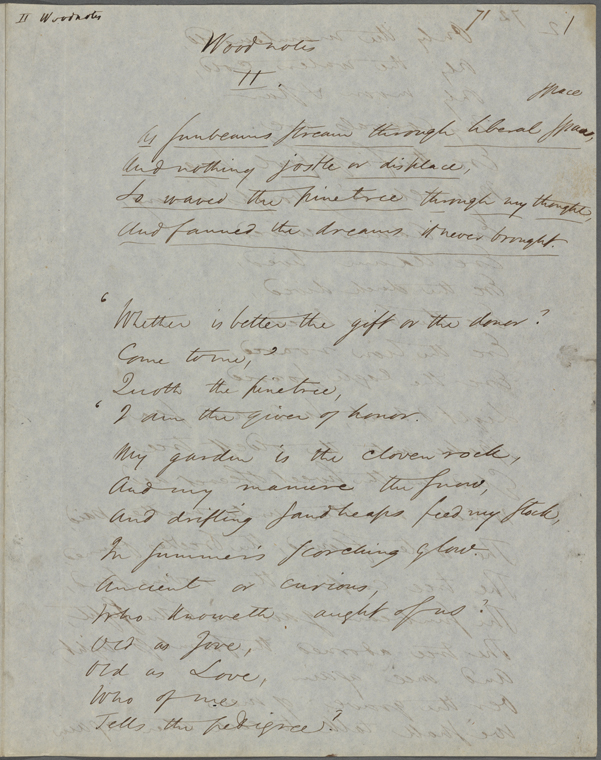 II Woodnotes
71
1
Woodnotes
II.
space
As sunbeams stream through liberal space,
And nothing jostle or displace,
So waved the pinetree through my thought,
And fanned the dreams it never brought.
‘Whether is better the gift or the donor?
Come to me,’
Quoth the pinetree,
‘I am the giver of honor.
My garden is the cloven rock,
And my manure the snow,
And drifting sandheaps feed my stock,
In summer's scorching glow
Ancient or curious,
Who knoweth aught of us?
Old as Jove,
Old as Love,
Who of me
Tells the pedigree?